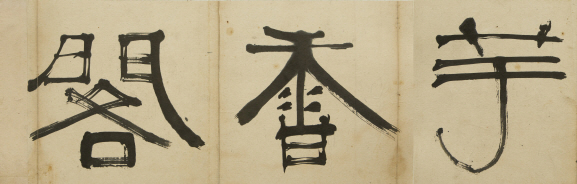 芋香閣